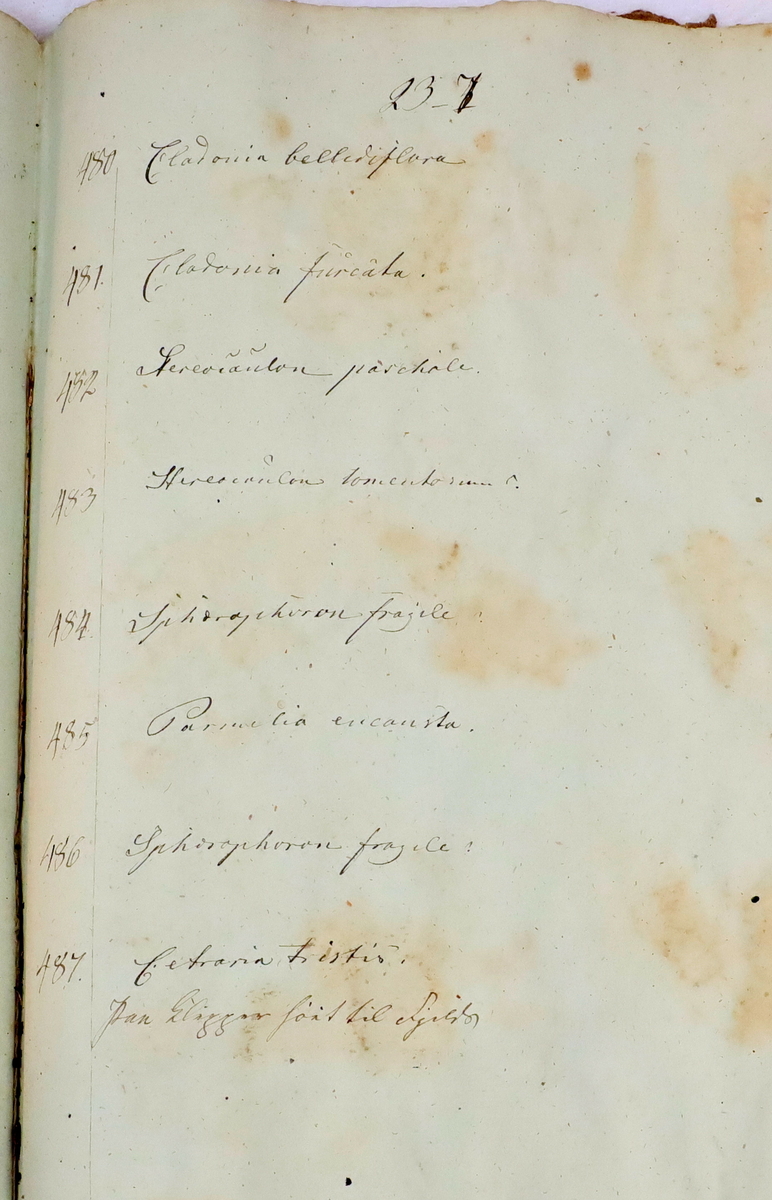 23-7
480 Cladonia bellidiflora
481. Cladonia furcata.
482 Stereocaulon paschale.
483 Stereocaulon tomentosum ?.
484. Sphærophoron fragile
485 Parmelia encausta.
486 Sphærophoron fragile ?
487. Cetraria tristis.
Paa Klipper høit til Fjelds